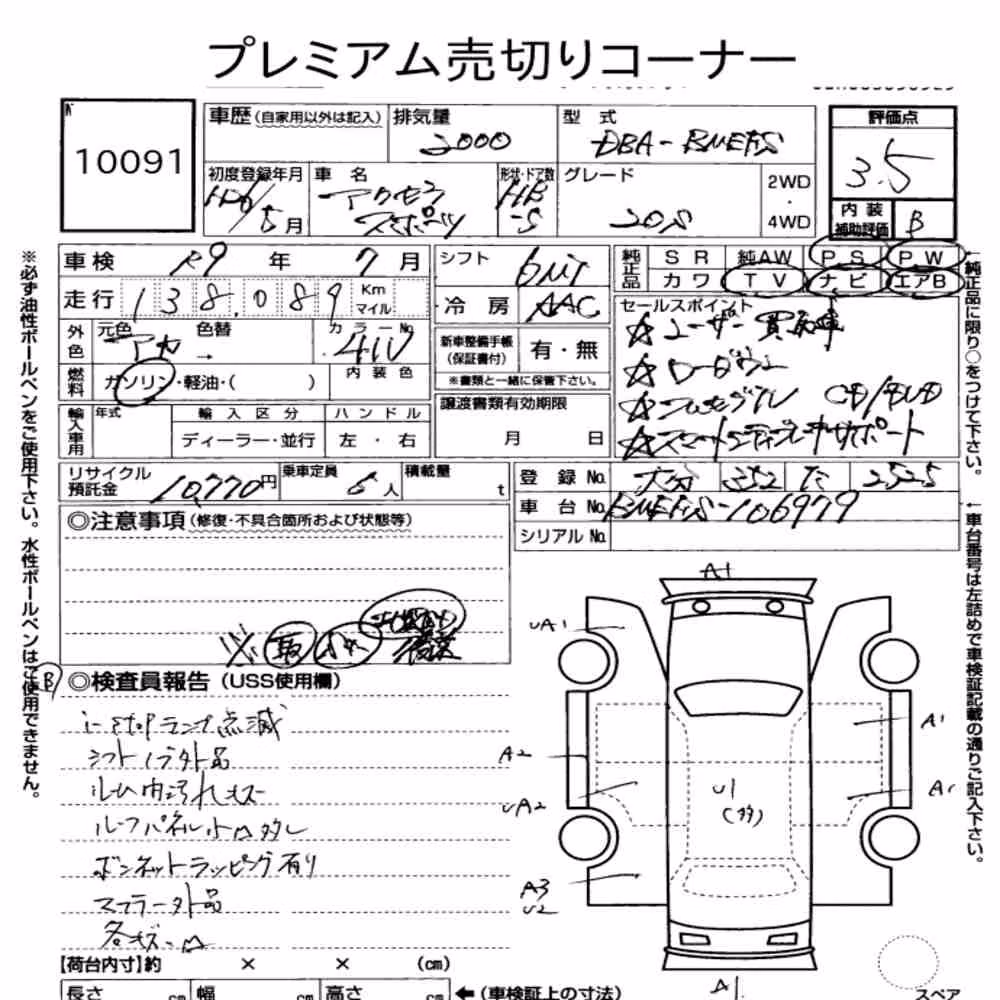 プレミアム売切りコーナー
10091
車歴(自家用以外は記入) 排気量 型式 評価点
2000 DBA-BMEFS 3.5
初度登録年月 車名 形状・ドア数 グレード 2WD・4WD
H26/5月 アクセラスポーツ HB-5 20S
内装補助評価 B
車検 R9年 7月 シフト 6MT
純正品 SR 純AW PS PW
カワ TV ナビ エアB
走行 138,089 Km マイル 冷房 AAC
セールスポイント
外色 元色 アカ 色替 → カラーNo. 41V
☆ユーザー買取車
新車整備手帳(保証書付) 有・無
☆ローダウン
※書類と一緒に保管下さい。
燃料 ガソリン・軽油・( ) 内装色
☆フルセグTV CD/DVD
譲渡書類有効期限 月 日
☆スマートシティブレーキサポート
輸入車用 年式 輸入区分 ハンドル
ディーラー・並行 左・右
リサイクル預託金 10,770円 乗車定員 5人 積載量 t
登録No. 大分 352 た 2525
車台No. BMEFS-106979
シリアルNo.
◎注意事項(修復・不具合箇所および状態等)
※必ず油性ボールペンをご使用下さい。水性ボールペンはご使用できません。
←純正品に限り○をつけて下さい。
←車台番号は左詰めで車検証記載の通りご記入下さい。
◎検査員報告(USS使用欄)
i-stopランプ点滅
シフトノブ外品
ルーム内汚れキズ
ルーフパネル小凹多し
ボンネットラッピング有り
マフラー外品
各キズ凹
A1
UA1
A1
A2
UA2
A1
U1
(多)
A3
U2
A1
【荷台内寸】約 × × (cm)
長さ cm 幅 cm 高さ cm ←(車検証上の寸法)
スペア